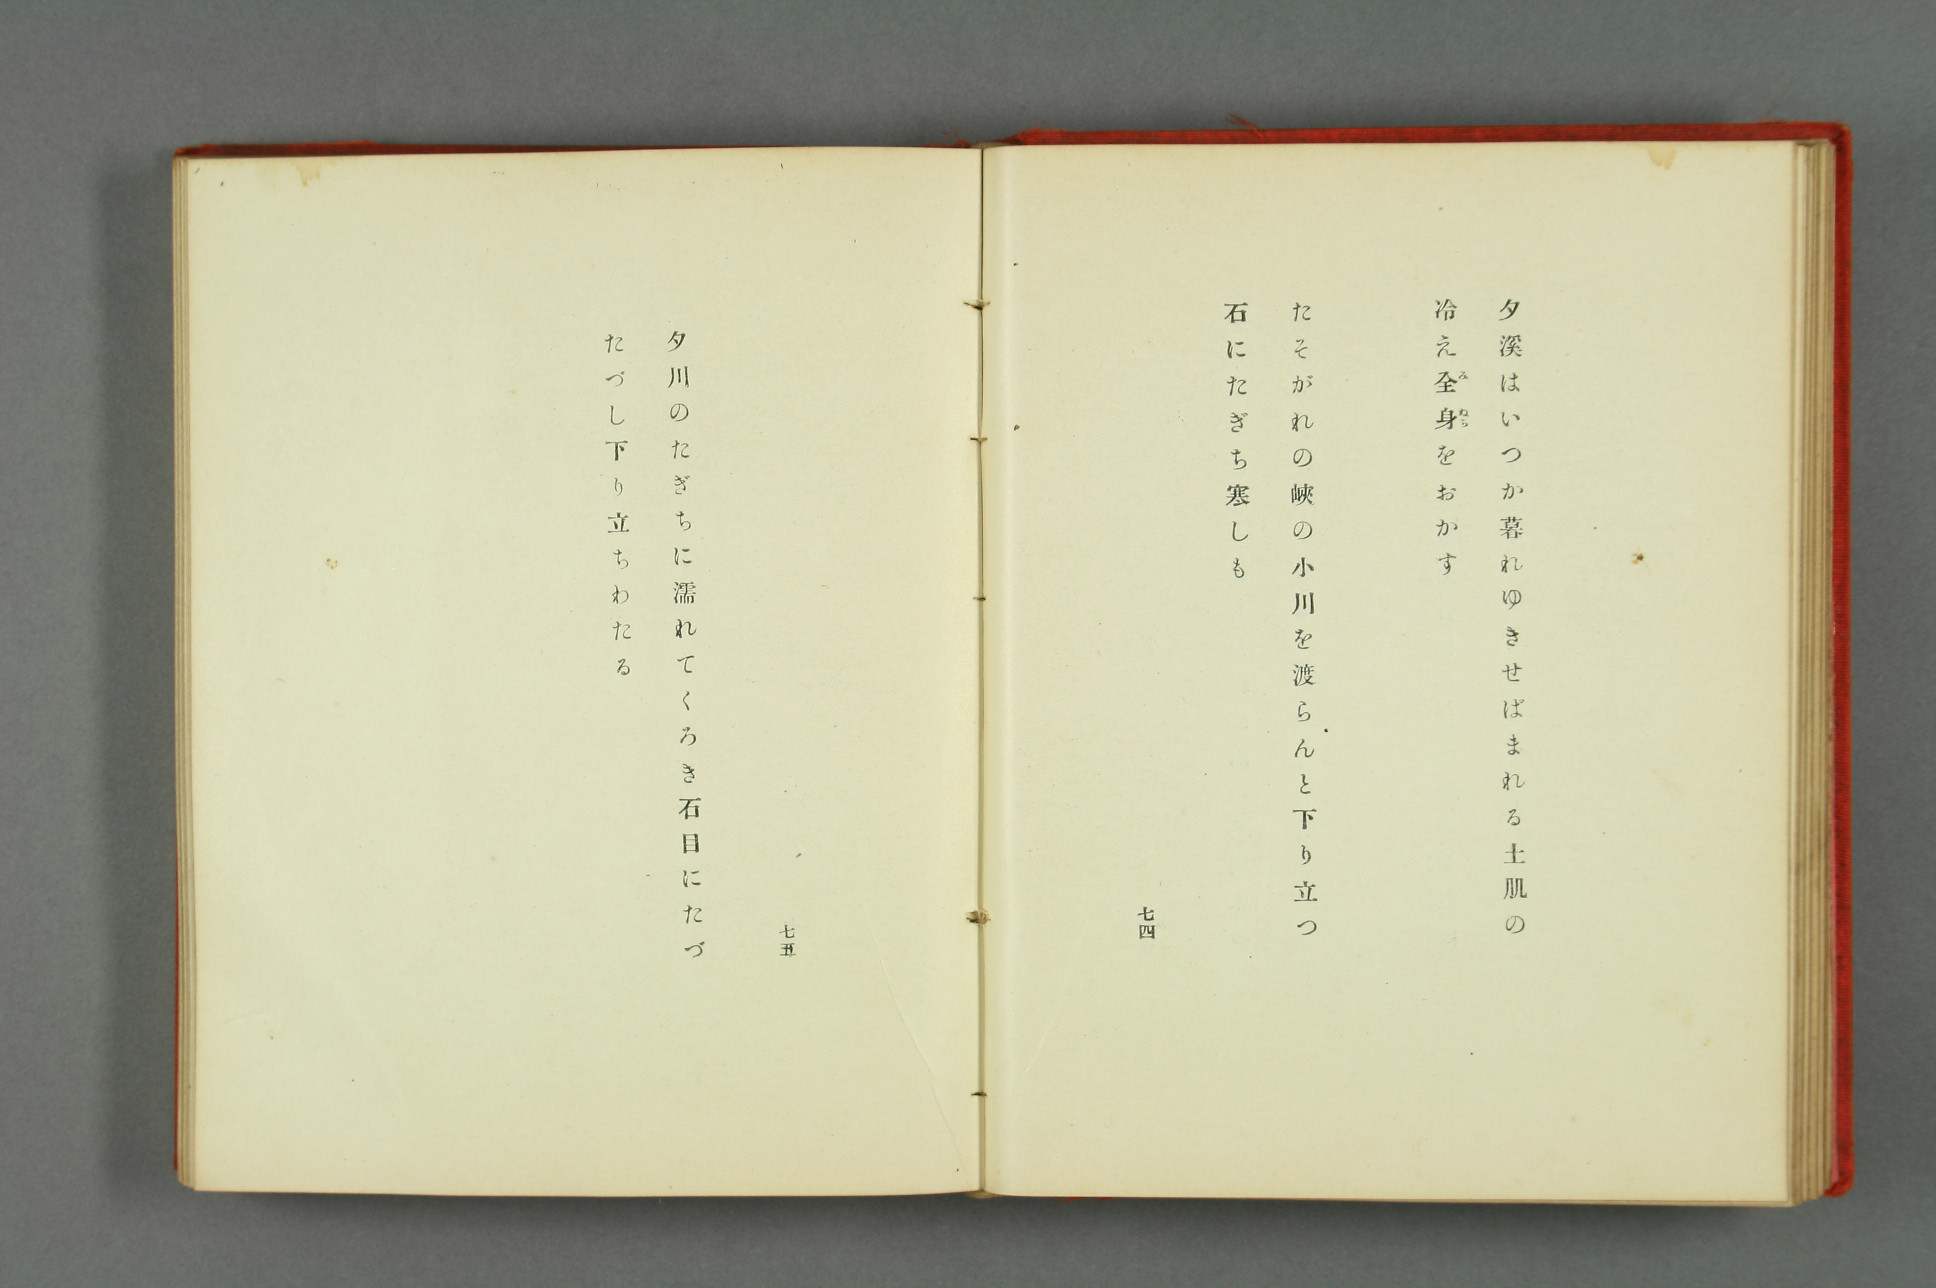 夕溪はいつか暮れゆきせばまれる土肌の
冷え全身をおかす
みぬち
たそがれの峽の小川を渡らんと下り立つ
石にたぎち寒しも
七四
七五
夕川のたぎちに濡れてくろき石目にたづ
たづし下り立ちわたる